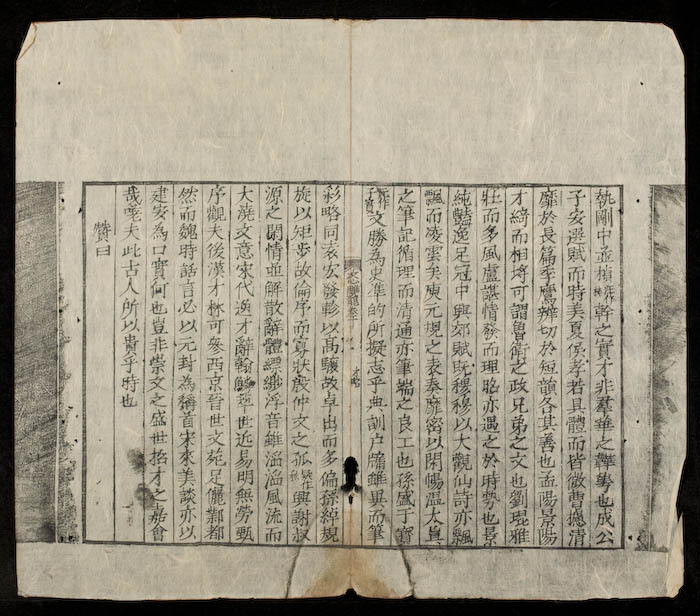 執剛中並楨元作棆幹之實才非羣華之韡萼也成公
子安選賦而時美夏侯孝若具體而皆微曹攄清
靡於長篇季鷹辨切於短韻各其善也孟陽景陽
才綺而相埒可謂魯衛之政兄弟之文也劉琨雅
壯而多風盧諶情發而理昭亦遇之於時勢也景
純豔逸足冠中興郊賦既穆穆以大觀仙詩亦飄
飄而凌雲矣庾元規之表奏靡密以閑暢溫太真
之筆記循理而清通亦筆端之良工也孫盛干寶
元作子實文勝為史準的所擬志乎典訓戶牖雖異而筆
文心雕龍卷十 才略
彩略同袁宏發軫以高驤故卓出而多偏孫綽規
旋以矩步故倫序而寡狀殷仲文之孤興謝叔
源之閑情並解散辭體縹緲浮音雖滔滔風流而
大澆文意宋代逸才辭翰鱗萃世近易明無勞甄
序觀夫後漢才林可參西京晉世文苑足儷鄴都
然而魏時話言必以元封為稱首宋來美談亦以
建安為口實何也豈非崇文之盛世招才之嘉會
哉嗟夫此古人所以貴乎時也
贊曰